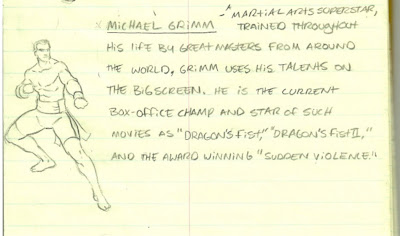 MICHAEL GRIMM - A MARTIAL ARTS SUPERSTAR,
TRAINED THROUGHOUT
HIS LIFE BY GREAT MASTERS FROM AROUND
THE WORLD, GRIMM USES HIS TALENTS ON
THE BIG SCREEN. HE IS THE CURRENT
BOX-OFFICE CHAMP AND STAR OF SUCH
MOVIES AS "DRAGON'S FIST," "DRAGON'S FIST II,"
AND THE AWARD WINNING "SUDDEN VIOLENCE."